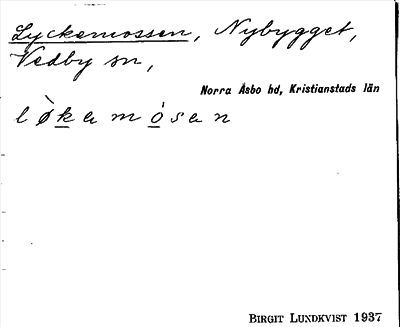 Lyckemossen, Nybygget,
Vedby sn,
Norra Åsbo hd, Kristianstads län
lø̀kamósan
BIRGIT LUNDKVIST 1937